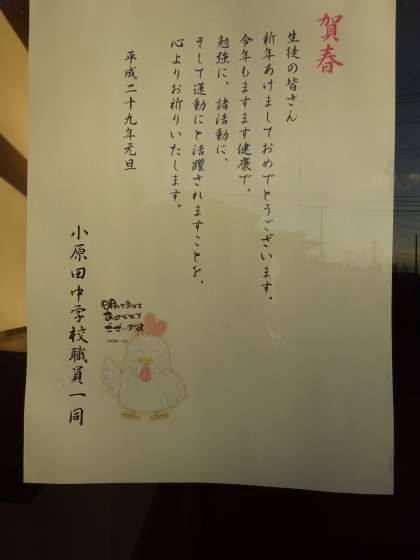 賀春
生徒の皆さん
新年あけましておめでとうございます。
今年もますます健康で、
勉強に、諸活動に、
そして運動にと活躍されますことを、
心よりお祈りいたします。
平成二十九年元旦
小原田中学校職員一同
明けまして
おめでとう
ございます